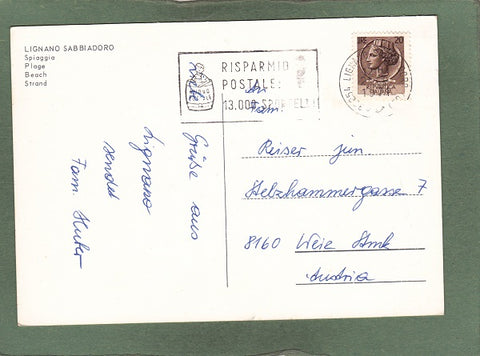 LIGNANO SABBIADORO
Spiaggia
Plage
Beach
Strand
RISPARMIO
POSTALE:
13.000 SPORTELLI
20
An
Fam.
Reiser jun
8160 Weiz Stmk
Austria
Grüße aus
Lignano
sendet
Fam. Huber